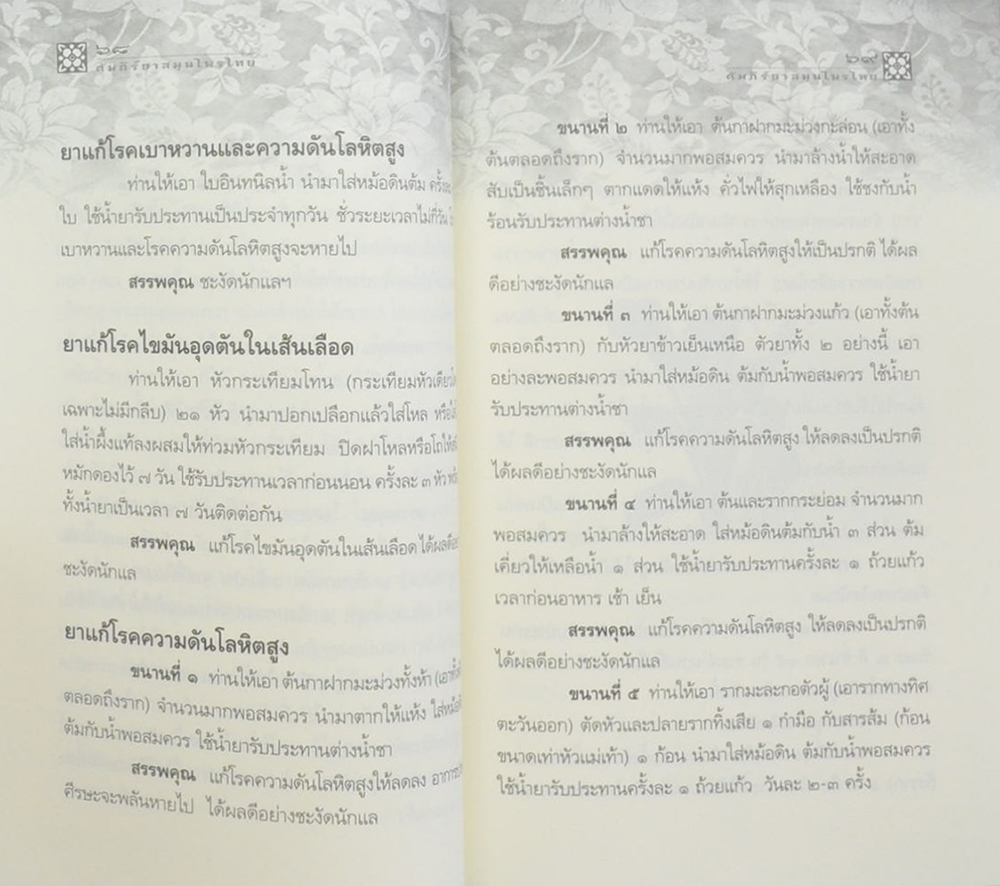 ๖๘
คัมภีร์ยาสมุนไพรไทย
ยาแก้โรคเบาหวานและความดันโลหิตสูง
ท่านให้เอา ใบอินทนิลน้ำ นำมาใส่หม้อดินต้ม
ใบ ใช้น้ำยารับประทานเป็นประจำทุกวัน ชั่วระยะเวลาไม่กี่วัน
เบาหวานและโรคความดันโลหิตสูงจะหายไป
สรรพคุณ ชะงัดนักแลฯ
ยาแก้โรคไขมันอุดตันในเส้นเลือด
ท่านให้เอา หัวกระเทียมโทน (กระเทียมหัวเดียว
เฉพาะไม่มีกลีบ) ๒๑ หัว นำมาปอกเปลือกแล้วใส่โหล
ใส่น้ำผึ้งแท้ลงผสมให้ท่วมหัวกระเทียม ปิดฝาโหลหรือโถ
หมักดองไว้ ๗ วัน ใช้รับประทานเวลาก่อนนอน ครั้งละ ๓ หัว
ทั้งน้ำยาเป็นเวลา ๗ วันติดต่อกัน
สรรพคุณ แก้โรคไขมันอุดตันในเส้นเลือด
ชะงัดนักแล
ยาแก้โรคความดันโลหิตสูง
ขนานที่ ๑ ท่านให้เอา ต้นกาฝากมะม่วงทั้งห้า
ตลอดถึงราก) จำนวนมากพอสมควร นำมาตากให้แห้ง
ต้มกับน้ำพอสมควร ใช้น้ำยารับประทานต่างน้ำชา
สรรพคุณ แก้โรคความดันโลหิตสูงให้ลดลง
ศีรษะจะพลันหายไป ได้ผลดีอย่างชะงัดนักแล
๖๙
คัมภีร์ยาสมุนไพรไทย
ขนานที่ ๒ ท่านให้เอา ต้นกาฝากมะม่วงกะล่อน (เอาทั้ง
ต้นตลอดถึงราก) จำนวนมากพอสมควร นำมาล้างน้ำให้สะอาด
สับเป็นชิ้นเล็กๆ ตากแดดให้แห้ง คั่วไฟให้สุกเหลือง ใช้ชงกับน้ำ
ร้อนรับประทานต่างน้ำชา
สรรพคุณ แก้โรคความดันโลหิตสูงให้เป็นปรกติ ได้ผล
ดีอย่างชะงัดนักแล
ขนานที่ ๓ ท่านให้เอา ต้นกาฝากมะม่วงแก้ว (เอาทั้งต้น
ตลอดถึงราก) กับหัวยาข้าวเย็นเหนือ ตัวยาทั้ง ๒ อย่างนี้ เอา
อย่างละพอสมควร นำมาใส่หม้อดิน ต้มกับน้ำพอสมควร ใช้น้ำยา
รับประทานต่างน้ำชา
สรรพคุณ แก้โรคความดันโลหิตสูง ให้ลดลงเป็นปรกติ
ได้ผลดีอย่างชะงัดนักแล
ขนานที่ ๔ ท่านให้เอา ต้นและรากกระย่อม จำนวนมาก
พอสมควร นำมาล้างให้สะอาด ใส่หม้อดินต้มกับน้ำ ๓ ส่วน ต้ม
เคี่ยวให้เหลือน้ำ ๑ ส่วน ใช้น้ำยารับประทานครั้งละ ๑ ถ้วยแก้ว
เวลาก่อนอาหาร เช้า เย็น
สรรพคุณ แก้โรคความดันโลหิตสูง ให้ลดลงเป็นปรกติ
ได้ผลดีอย่างชะงัดนักแล
ขนานที่ ๕ ท่านให้เอา รากมะละกอตัวผู้ (เอารากทางทิศ
ตะวันออก) ตัดหัวและปลายรากทิ้งเสีย ๑ กำมือ กับสารส้ม (ก้อน
ขนาดเท่าหัวแม่เท้า) ๑ ก้อน นำมาใส่หม้อดิน ต้มกับน้ำพอสมควร
ใช้น้ำยารับประทานครั้งละ ๑ ถ้วยแก้ว วันละ ๒-๓ ครั้ง